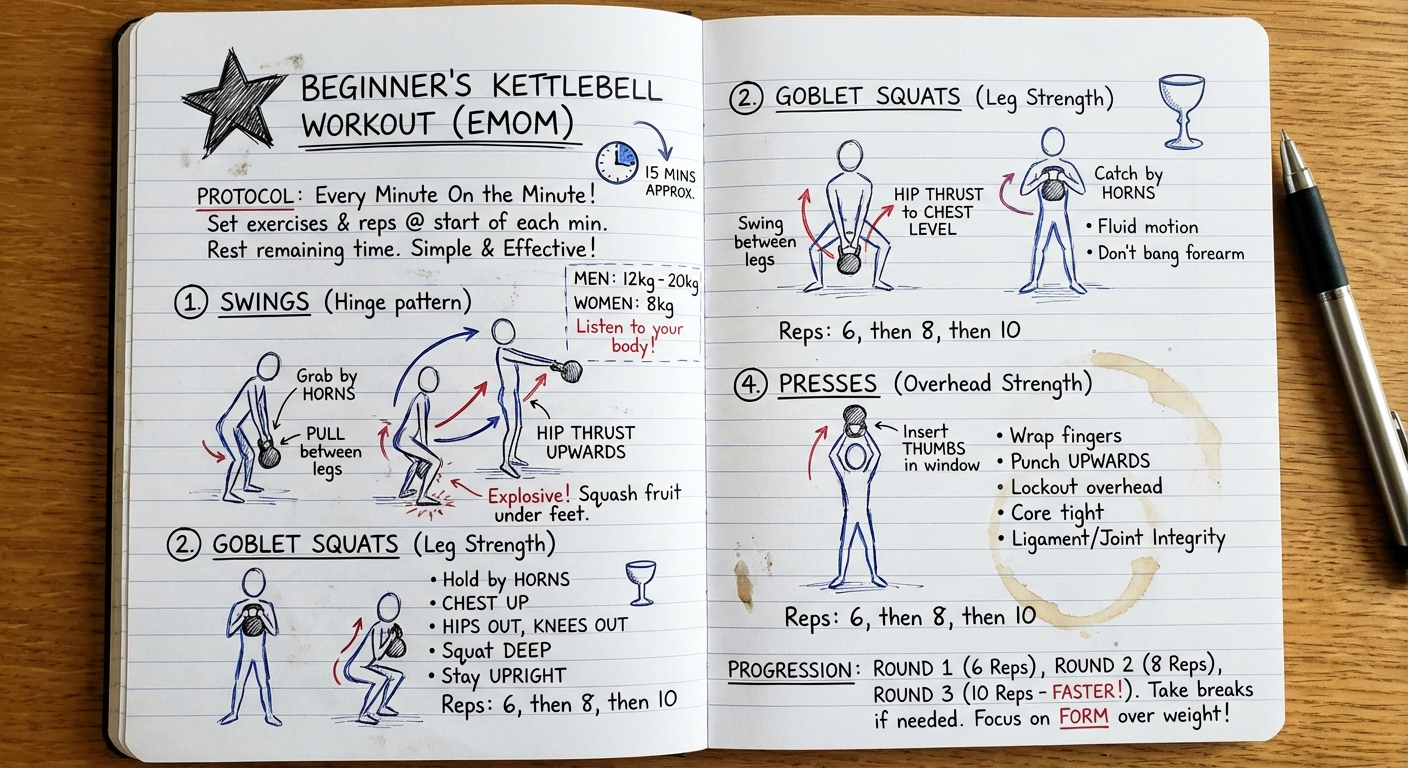 BEGINNER'S KETTLEBELL
WORKOUT (EMOM)
15 MINS
APPROX.
PROTOCOL: Every Minute On the Minute!
Set exercises & reps @ start of each min.
Rest remaining time. Simple & Effective!
MEN: 12kg-20kg
WOMEN: 8kg
Listen to your
body!
1. SWINGS (Hinge pattern)
Grab by
HORNS
PULL
between
legs
HIP THRUST
UPWARDS
Explosive! Squash fruit
under feet.
2. GOBLET SQUATS (Leg Strength)
• Hold by HORNS
• CHEST UP
• HIPS OUT, KNEES OUT
• Squat DEEP
• Stay UPRIGHT
Reps: 6, then 8, then 10
2. GOBLET SQUATS (Leg Strength)
Swing
between
legs
HIP THRUST
to CHEST
LEVEL
Catch by
HORNS
• Fluid motion
• Don't bang forearm
Reps: 6, then 8, then 10
4. PRESSES (Overhead Strength)
Insert
THUMBS
in window
• Wrap fingers
• Punch UPWARDS
• Lockout overhead
• Core tight
• Ligament/Joint Integrity
Reps: 6, then 8, then 10
PROGRESSION: ROUND 1 (6 Reps), ROUND 2 (8 Reps),
ROUND 3 (10 Reps - FASTER!). Take breaks
if needed. Focus on FORM over weight!